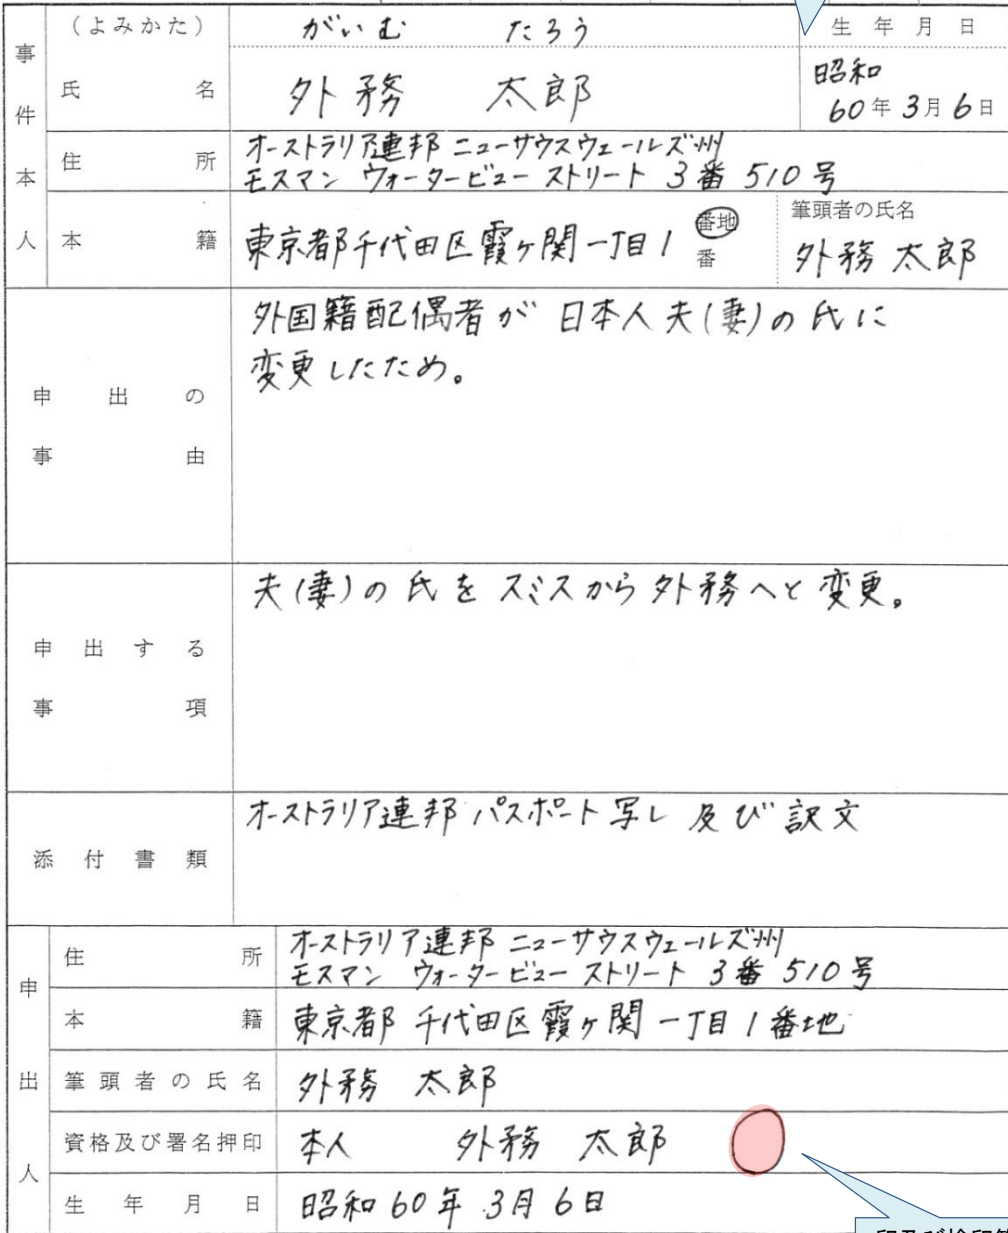 事件本人
(よみかた) がいむ たろう 生年月日
氏名 外務 太郎 昭和
60年3月6日
住所 オーストラリア連邦 ニューサウスウェールズ州
モスマン ウォータービュー ストリート 3番 510号
本籍 東京都千代田区霞ヶ関一丁目1 番地
番
筆頭者の氏名
外務 太郎
申出の事由
外国籍配偶者が 日本人夫(妻)の氏に
変更したため。
申出する事項
夫(妻)の氏をスミスから外務へと変更。
添付書類
オーストラリア連邦 パスポート写し 及び 訳文
申出人
住所 オーストラリア連邦 ニューサウスウェールズ州
モスマン ウォータービュー ストリート 3番 510号
本籍 東京都 千代田区霞ヶ関 一丁目1番地
筆頭者の氏名 外務 太郎
資格及び署名押印 本人 外務 太郎
生年月日 昭和60年3月6日